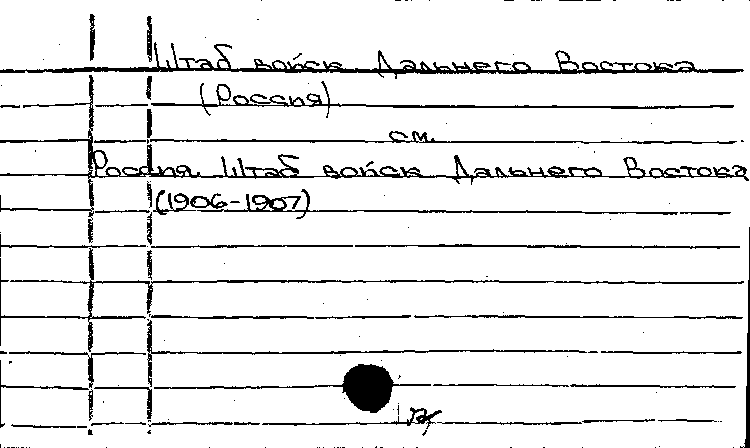 Штаб войск Дальнего Востока
(Россия)
см.
Россия. Штаб войск Дальнего Востока
(1906-1907)